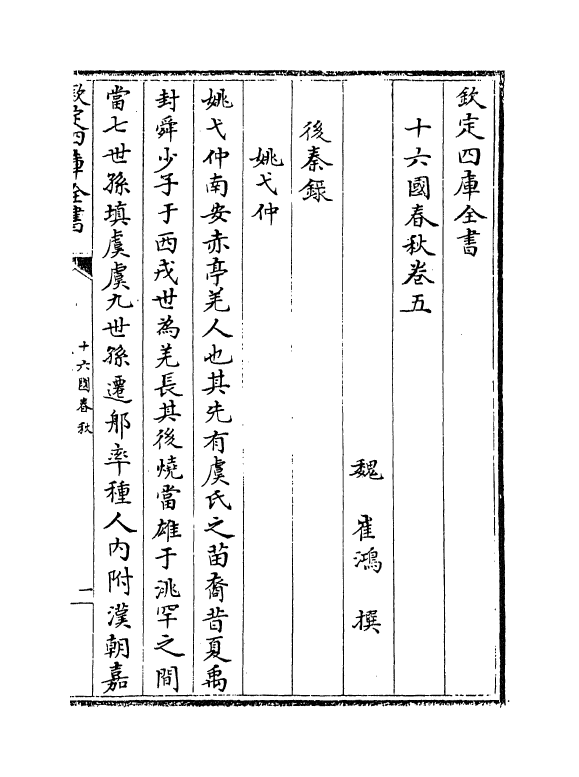 欽定四庫全書
十六國春秋卷五
魏 崔鴻 撰
後秦錄
姚弋仲
姚弋仲南安赤亭羌人也其先有虞氏之苗裔昔夏禹
封舜少子于西戎世為羌長其後燒當雄于洮罕之間
當七世孫填虞虞九世孫遷那率種人內附漢朝嘉
欽定四庫全書
十六國春秋
一